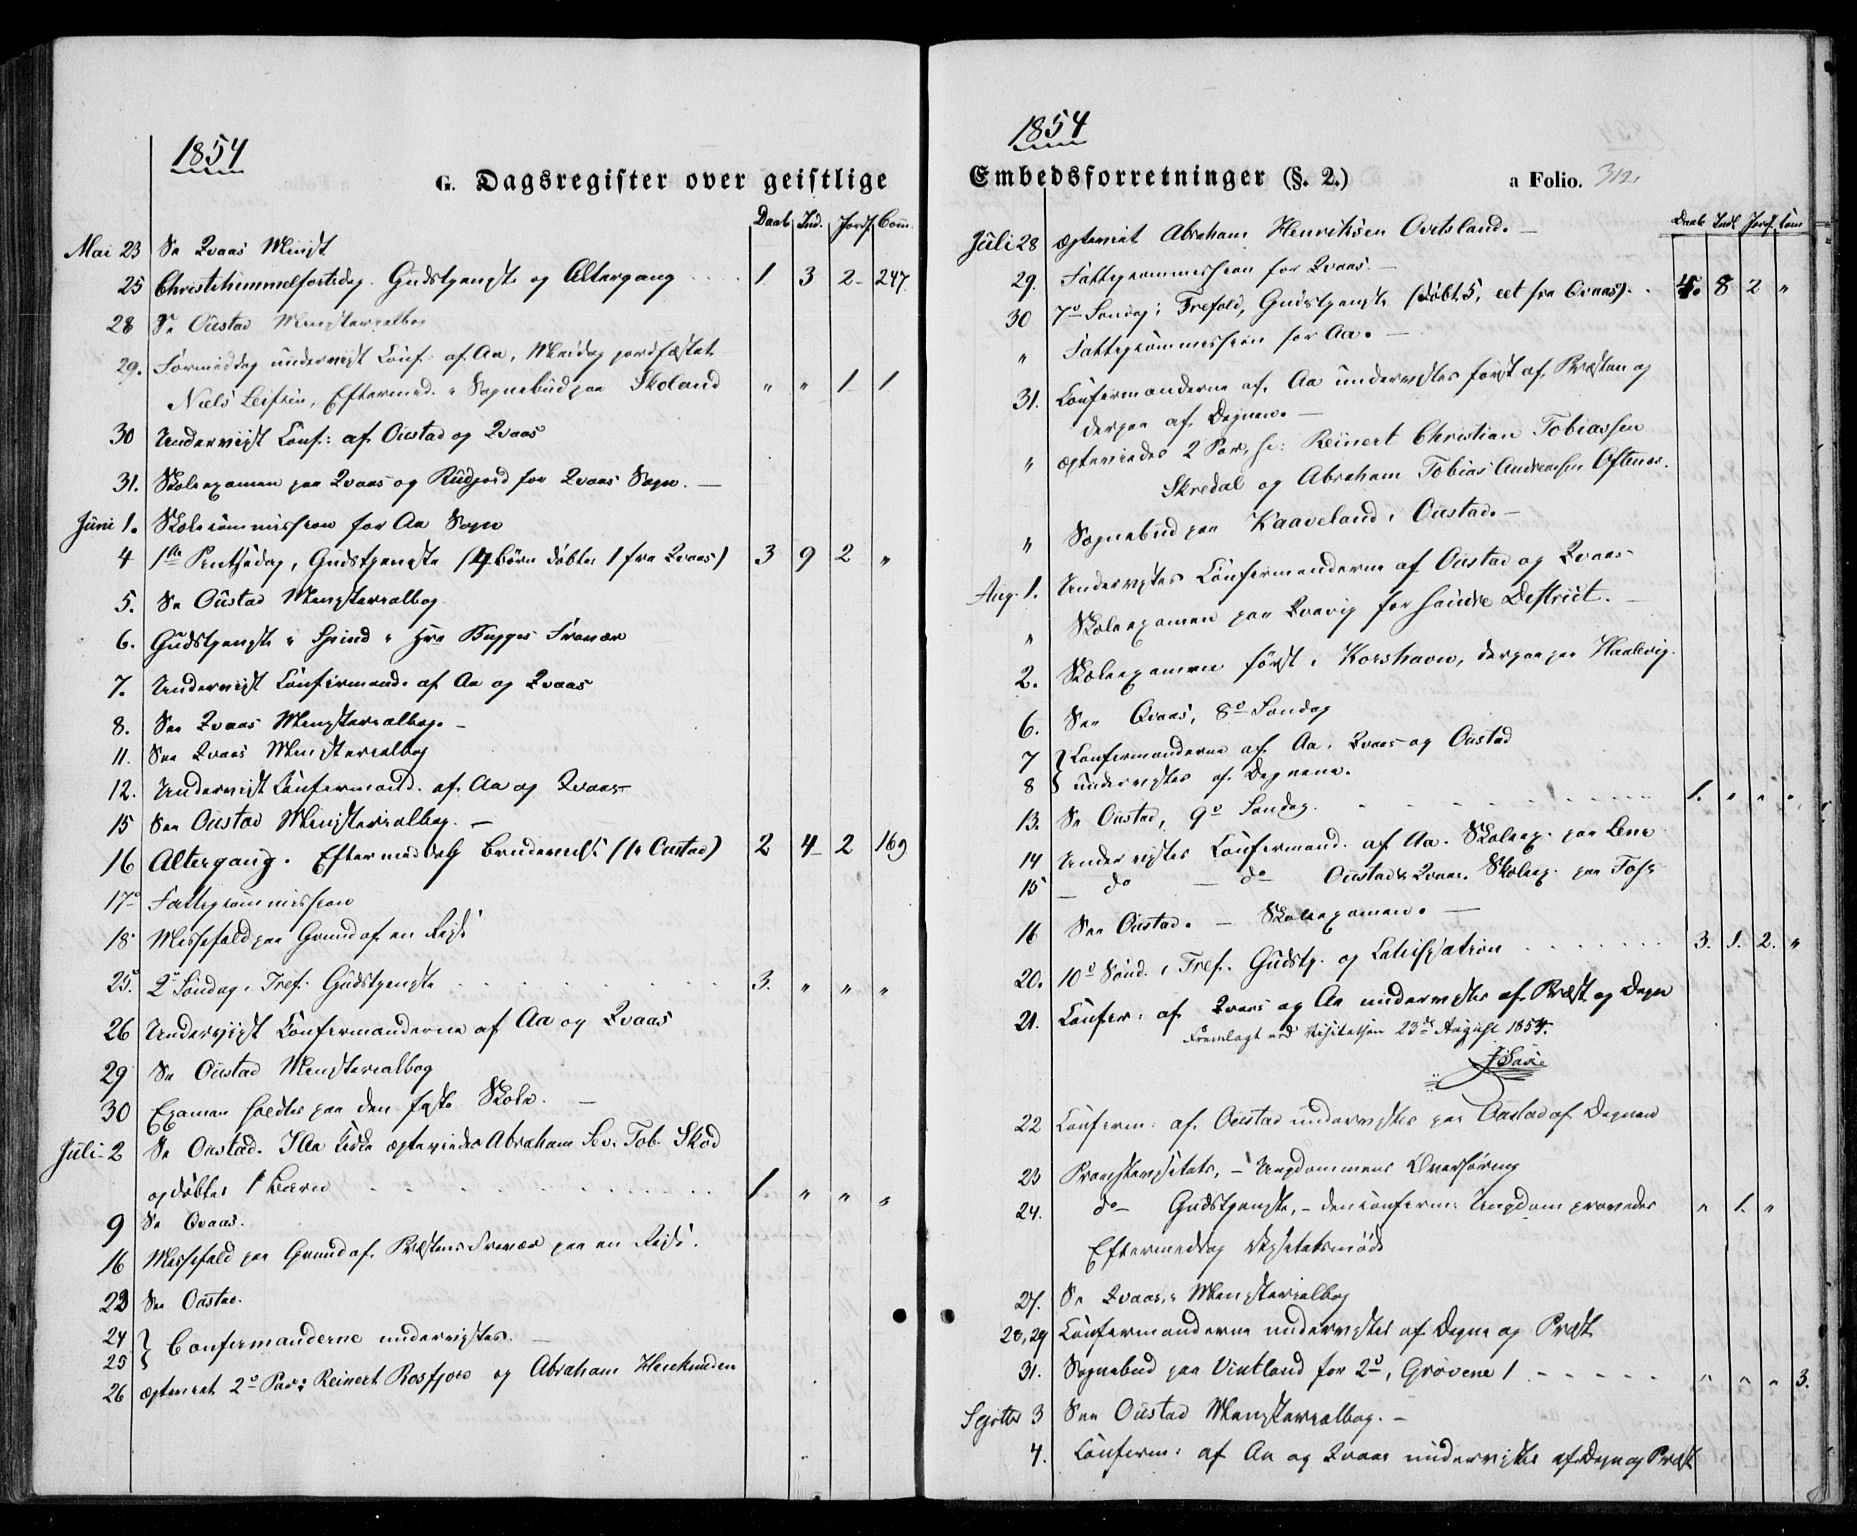 1854
G. Dagsregister over geistlige
Daab Ind. Jordf. Com.
Mai 23 Se Qvaas Minist
25 Christihimmelfartsdag. Gudstjeneste og Altergang 1 3 2 247.
28 Se Oustad Ministerialbog
29. Formiddag undervist Conf: af Aa, Middag jordfæstet
Niels, Eftermid. Sognebud paa Skoland " " 1 1
30 Undervist Conf: af Oustad og Qvaas
31. Skoleexamen paa Qvaas og Rudjord for Qvaas Sogn. —
Juni 1. Skolecommission for Aa Sogn
4 1ste Pintsedag, Gudstjeneste (4 Börn döbtes 1 fra Qvaas) 3 9 2 "
5. Se Oustad Ministerialbog
6. Gudstjeneste i Spind i Hrr Bugges Fravær
7. Undervist Confirmand. af Aa og Qvaas
8. See Qvaas Ministerialbog. —
11. See Qvaas Ministerialbog
12. Undervist Confirmand. af Aa og Qvaas
15 See Oustad Ministerialbog. —
16 Altergang. Eftermiddag Brudevielse (fr Oustad) 2 4 2 169
17 Fattigcommission
18 Messefald paa Grund af en Reise
25. 2 Söndag i Tref: Gudstjeneste 3. " " "
26 Undervist Confirmanderne af Aa og Qvaas
29 Se Oustad Ministerialbog
30 Examen holdtes paa den faste Skole. —
Juli 2 Se Oustad. I Aa Kirke ægteviedes Abraham Sev: Tob. Skod
og döbtes 1 Barn 1. " " "
9 Se Qvaas.
16 Messefald paa Grund af Præstens Fravær paa en Reise.
23 See Oustad.
24 } Confirmanderne undervistes. —
25
26 ægteviet 2 Par: Reinert Rosfjord og Abraham
1854
Embedsforretninger (§. 2.) a Folio. 312.
Daab Ind. Jordf. Com
Juli 28 ægteviet Abraham Henriksen Ovitsland. —
29. Fattigcommission for Qvaas. —
30 7 Söndag i Trefold, Gudstjeneste (döbt 5, eet fra Qvaas). 4. 8 2 "
" Fattigcommission for Aa. —
31. Confirmanderne af Aa undervistes först af Præsten og
derpaa af Degnen. —
" ægteviedes 2 Par, se: Reinert Christian Tobiassen
Skredal og Abraham Tobias Andreassen Oftenes.
" Sognebud paa Kaaveland i Oustad. —
Aug. 1. Undervistes Confirmanderne af Oustad og Qvaas
" Skoleexamen paa Qvavig for söndre District. —
2. Skoleexamen först i Korshavn, derpaa paa Haalevig.
6. See Qvaas, 8 Söndag
7 } Confirmanderne af Aa, Qvaas og Oustad
8 } undervistes af Degnene.
13. Se Oustad, 9 Söndag. 1. " " "
14 Undervistes Confirmand. af Aa. Skoleex. paa Lene
15 — do — do Oustad & Qvaas. Skoleex. paa Foss
16 See Oustad. — Skoleexamen. —
20. 10 Sönd. i Tref. Gudstj. og Catechisation 3. 1. 2. "
21. Confir: af Qvaas og Aa undervistes af Præst og Degn
Fremlagt ved Visitatsen 23de August 1854.
22 Confirm: af Oustad undervistes paa Oustad af Degnen
23 Provstevisitats, — Ungdommens Overhöring
24. do — Gudstjeneste, — den confirm: Ungdom prövedes " 1. "
Eftermiddag Visitatsmöde
27. Se Qvaas, Ministerialbog
28, 29 Confirmanderne undervistes af Degne og Præst
31. Sognebud paa Vintland for 2, Grövene 1 " " " 3.
Septbr 3 See Oustad Ministerialbog. —
4. Confirm: af Aa og Qvaas undervistes af Degn og Præst